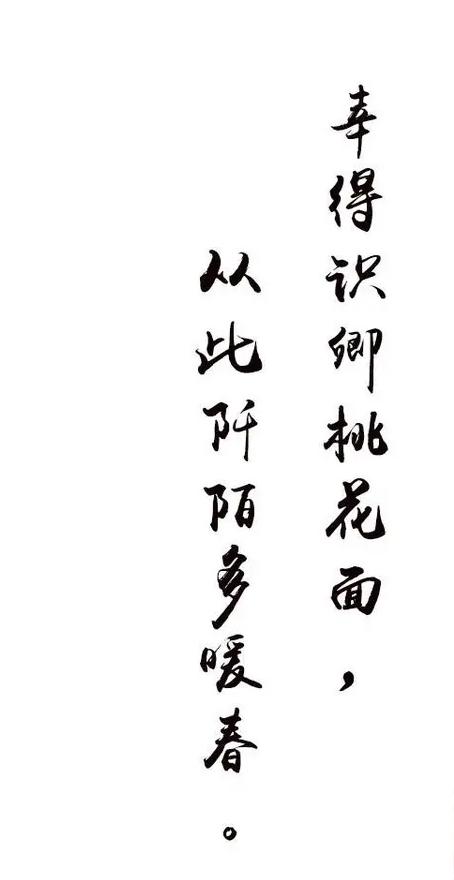 幸得识卿桃花面，
从此阡陌多暖春。